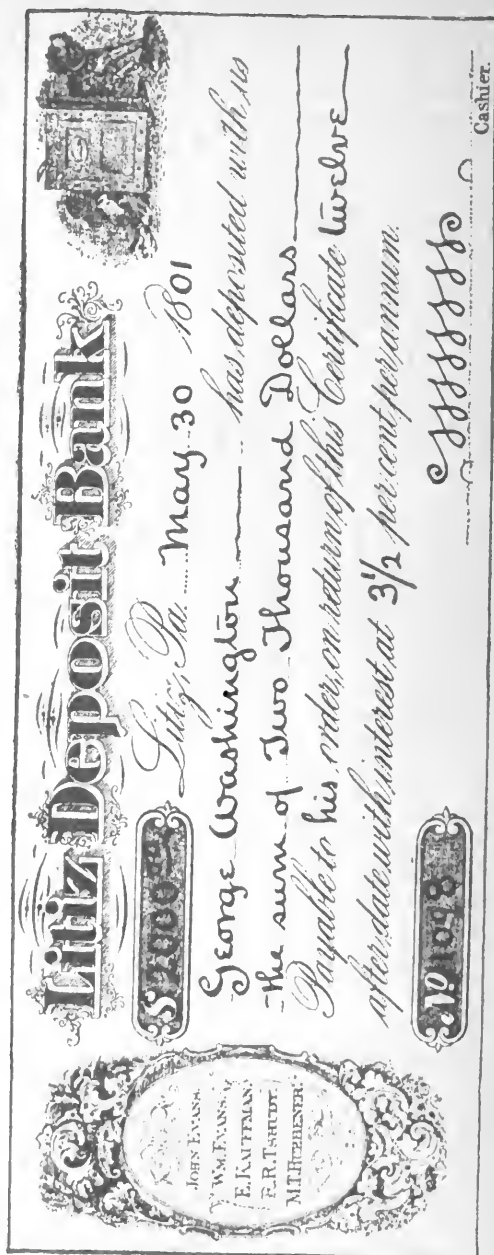 Litiz Deposit Bank
$2000 Litiz, Pa. May 30 1801
George Washington has deposited with us
the sum of Two Thousand Dollars
Payable to his order, on return of this Certificate twelve
after date with interest at 3 1/2 per cent per annum.
No 1098
Cashier.
JOHN EVANS,
WM EVANS,
E. KAUFFMAN,
R.R. TSHUDY,
M.T. HUEBENER.